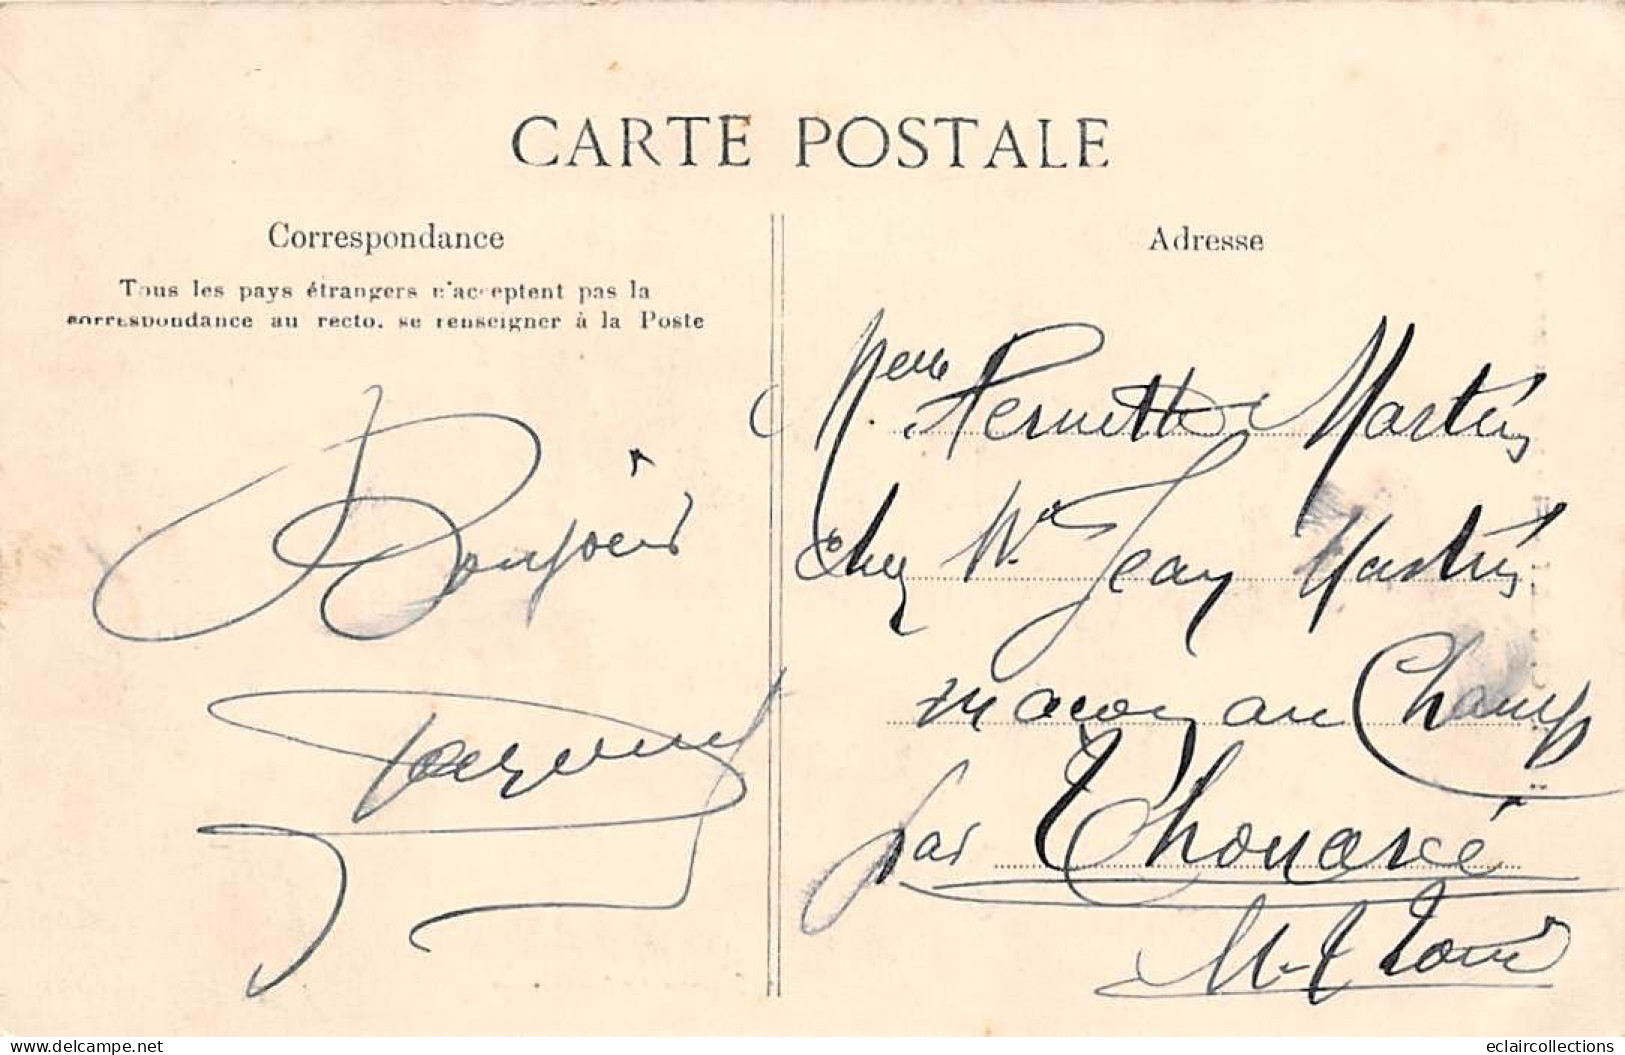 CARTE POSTALE
Correspondance
Tous les pays étrangers n'acceptent pas la
correspondance au recto, se renseigner à la Poste
Bonjour
Adresse
Melle Pernette Martin
chez Mr Jean Martin
maçon au Champ
par Thouaré
delcampe.net
eclaircollections